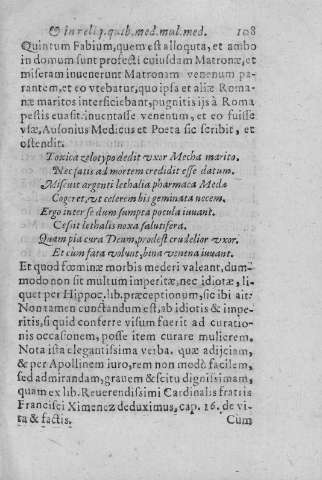 & in reliq. quib. med. mul. med. 108
Quintum Fabium, quem est alloquta, et ambo
in domum sunt profecti cuiusdam Matronæ, et
miseram inuenerunt Matronam venenum pa-
rantem, et eo vtebatur, quo ipsa et aliæ Roma-
næ maritos interficiebant, pugnitis ijs à Roma
pestis euasit. inuentasse venenum, et eo fuisse
vsæ, Ausonius Medicus et Poeta sic scribit, et
ostendit.
Toxica zelotypo dedit vxor Mecha marito,
Nec satis ad mortem credidit esse datum.
Miscuit argenti lethalia pharmaca Medo
Cogeret, vt celerem bis geminata necem.
Ergo inter se dum sumpta pocula iuuant.
Cessit lethalis noxa salutifera.
Quam pia cura Deum, prodest crudelior vxor.
Et cum fata volunt, bina venena iuuant.
Et quod fœminæ morbis mederi valeant, dum-
modo non sit multum imperitæ, nec idiotæ, li-
quet per Hippoc. lib. præceptionum, sic ibi ait:
Non tamen cunctandum est, ab idiotis & impe-
ritis, si quid conferre visum fuerit ad curatio-
nis occasionem, posse item curare mulierem.
Nota ista elegantissima verba. quæ adijciam,
& per Apollinem iuro, rem non modò facilem,
sed admirandam, grauem & scitu dignissimam,
quam ex lib. Reuerendissimi Cardinalis fratris
Francisci Ximenez deduximus, cap. 16. de vi-
ta & factis. Cum